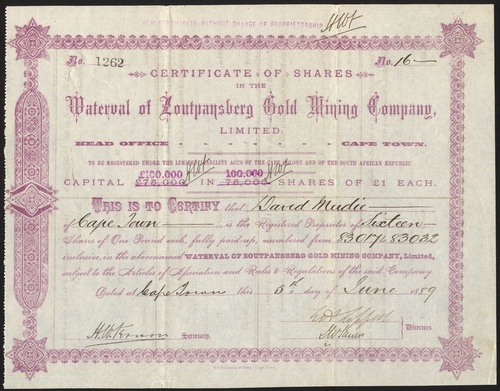 NEW CERTIFICATE WITHOUT CHANGE OF PROPRIETORSHIP
No. 1262 No. 16
CERTIFICATE OF SHARES
IN THE
Waterval of Zoutpansberg Gold Mining Company,
LIMITED.
HEAD OFFICE - - - - - - - CAPE TOWN.
TO BE REGISTERED UNDER THE LIMITED LIABILITY ACTS OF THE CAPE COLONY AND OF THE SOUTH AFRICAN REPUBLIC.
£100,000 100,000
CAPITAL £75,000 IN 75,000 SHARES OF £1 EACH.
THIS IS TO CERTIFY that David Mudie
of Cape Town is the Registered Proprietor of Sixteen
Shares of One Pound each, fully paid-up, numbered from 83017 to 83032
inclusive, in the abovenamed WATERVAL OF ZOUTPANSBERG GOLD MINING COMPANY, Limited,
subject to the Articles of Association and Rules & Regulations of the said Company.
Dated at Cape Town this 5th day of June 1889
Secretary.
Directors.